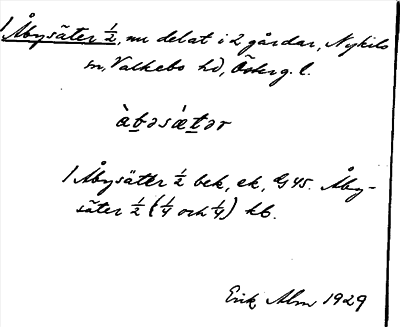 1 Åbysäter ½, nu delat i 2 gårdar, Nykils
sn, Valkebo hd, Österg. l.
àb̠əsǽt̠ər
1 Åbysäter ½ bek, ek, G 45. Åby-
säter ½ (¼ och ¼) kb.
Erik Alm 1929